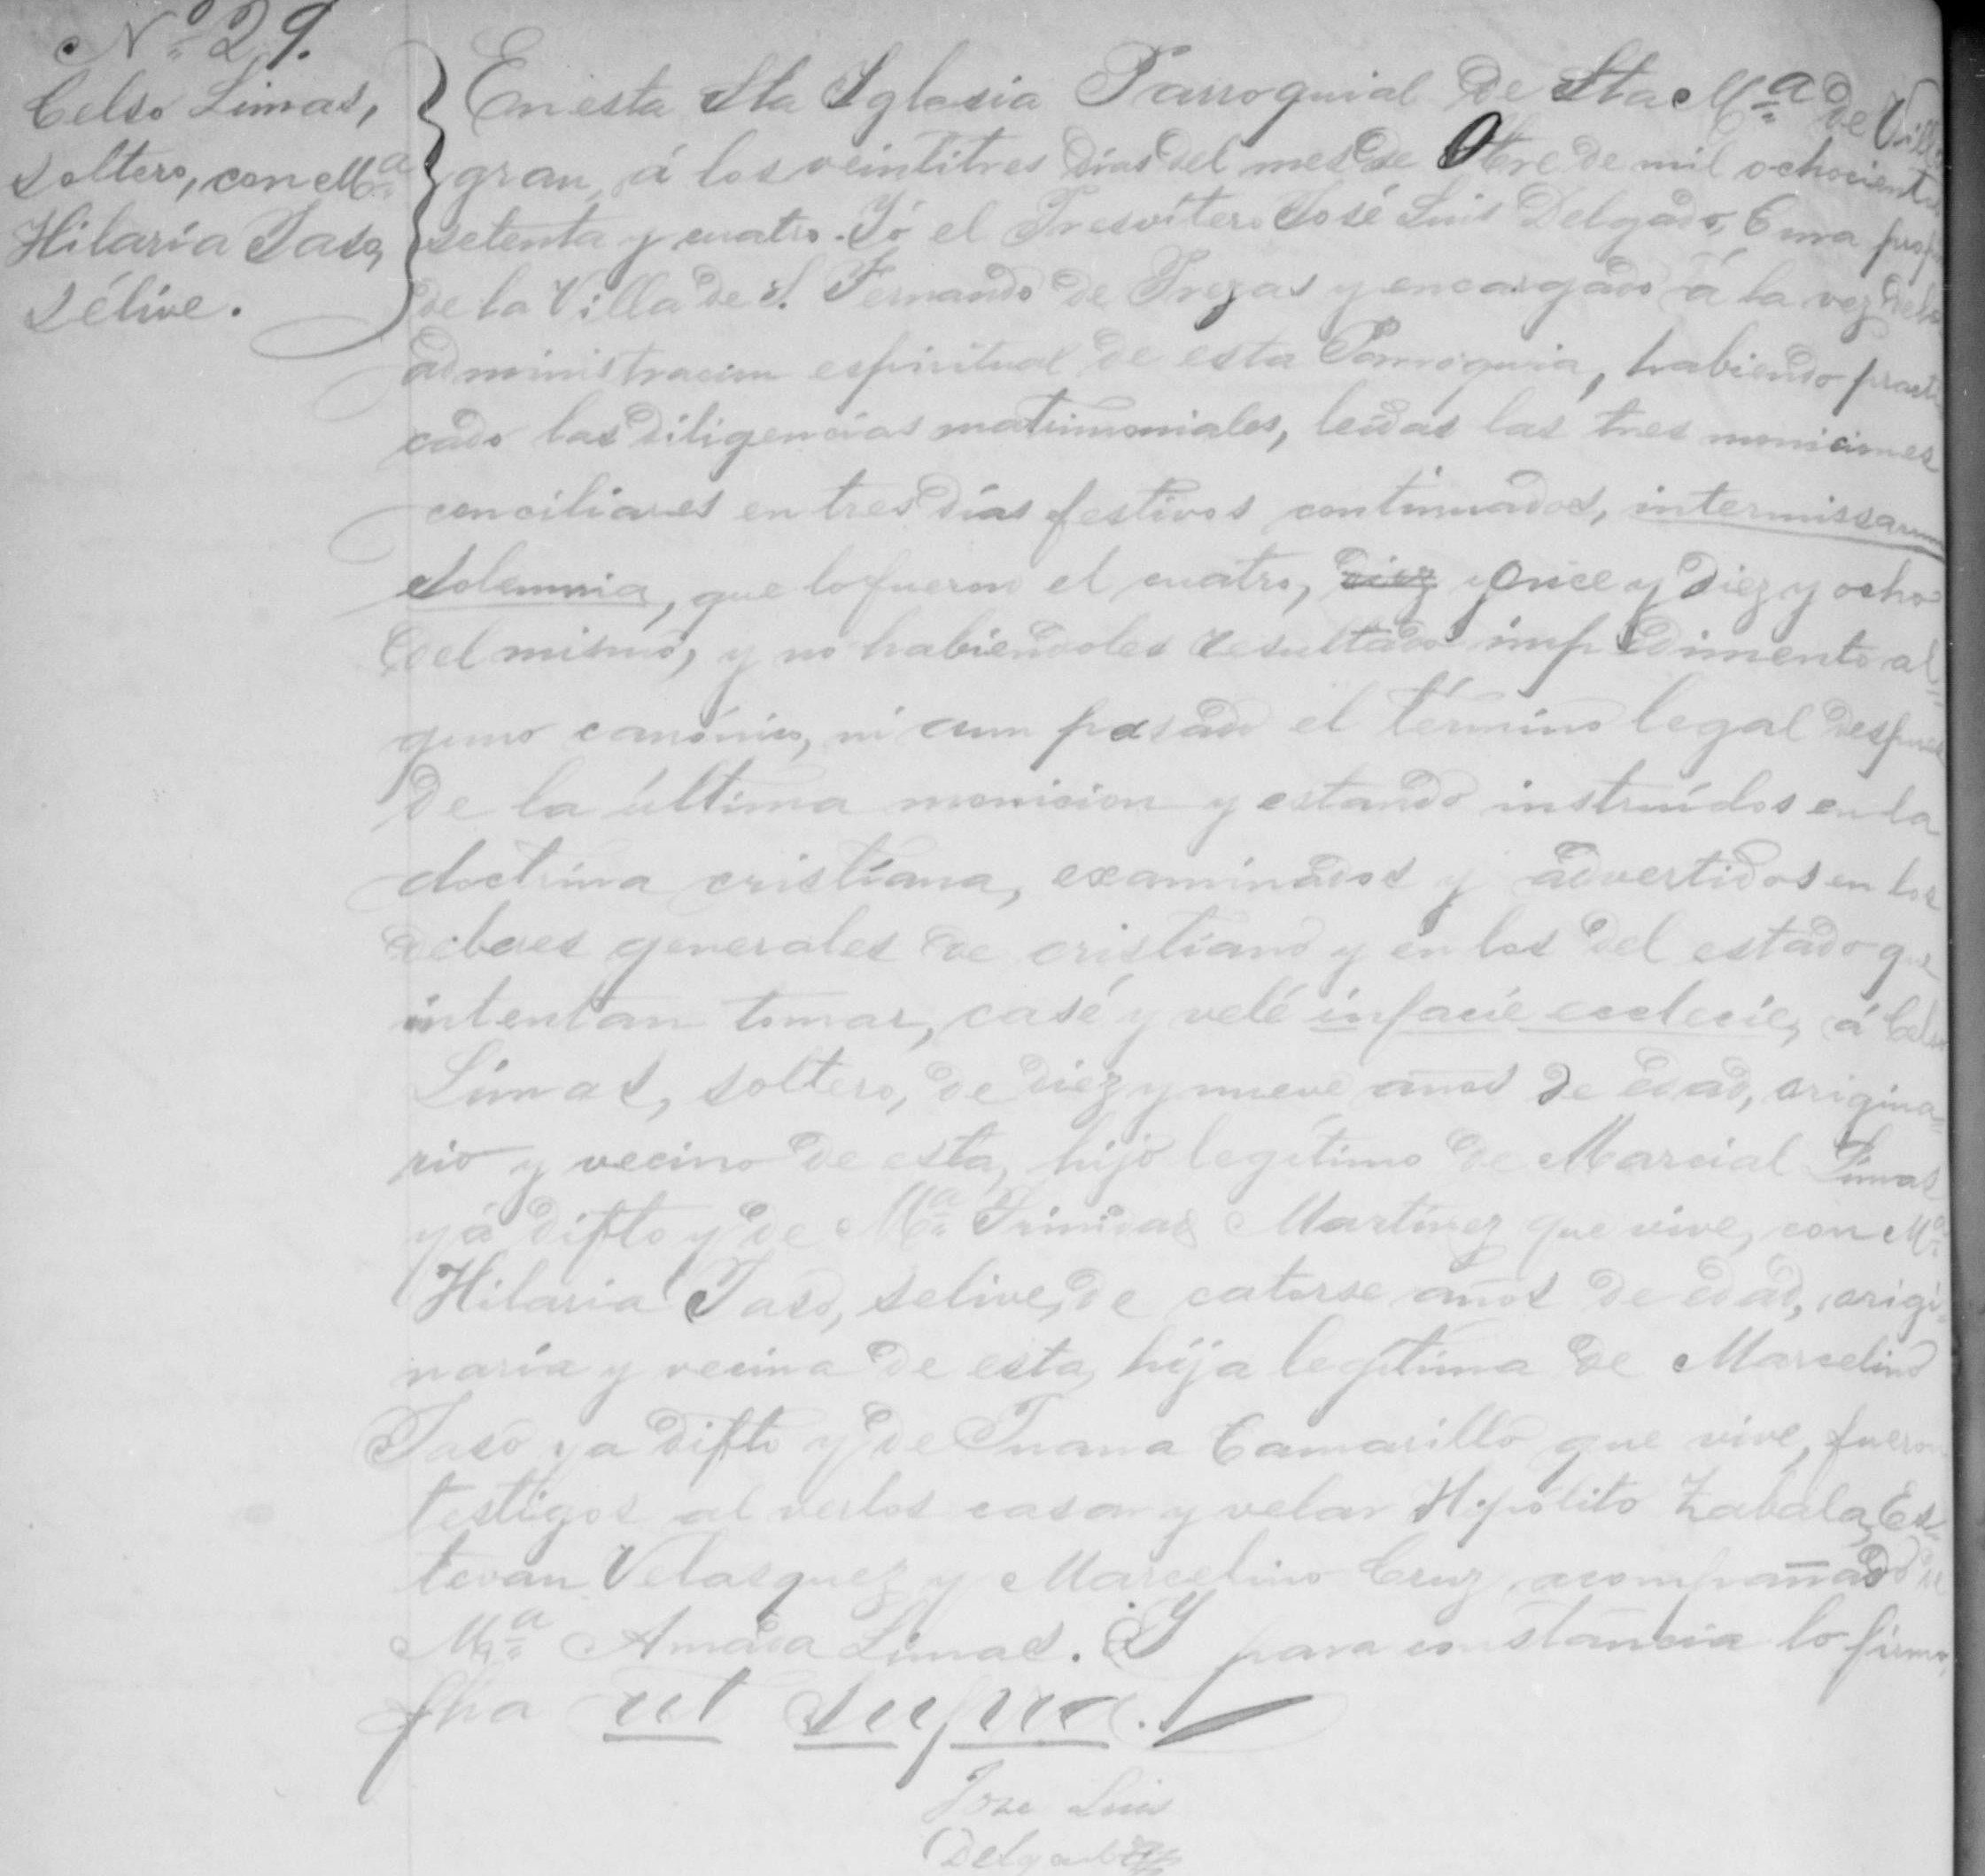 Nº 29.
Celso Limas,
soltero, con Mª
Hilaria Jaso,
sélive.
En esta Sta Iglesia Parroquial de Sta Mª de Villa
gran, á los veintitres dias del mes de Otbre de mil ochocientos
setenta y cuatro. Yó el Presvítero José Luis Delgado, Cura propio
de la Villa de S. Fernando de Prezas y encargado á la vez de la
administracion espiritual de esta Parroquia, habiendo practi
cado las diligencias matrimoniales, leidas las tres moniciones
conciliares en tres días festivos continuados, intermissarum
solemnia, que lo fueron el cuatro, diez y once y diez y ocho
del mismo, y no habiendoles resultado impedimento al=
guno canónico, ni aun pasado el término legal despues
de la última monicion y estando instruídos en la
doctrina cristiana, examinados y advertidos en los
deberes generales de cristiano y en los del estado que
intentan tomar, casé y velé infacie ecclecie, á Celso
Limas, soltero, de diez y nueve años de edad, origina=
rio y vecino de esta, hijo legítimo de Marcial Limas
yá difto y de Mª Trinidad Martínez que vive, con Mª
Hilaria Jaso, selive, de catorse años de edad, origi=
naria y vecina de esta, hija legítima de Marcelino
Jaso ya difto y de Juana Camarillo que vive, fueron
testigos al verlos casar y velar Hipólito Zabala, Es=
tevan Velasquez y Marcelino Cruz acompañado de
Mª Amada Limas. Y para constancia lo firmo,
fha ut supra.
Jose Luis
Delgado